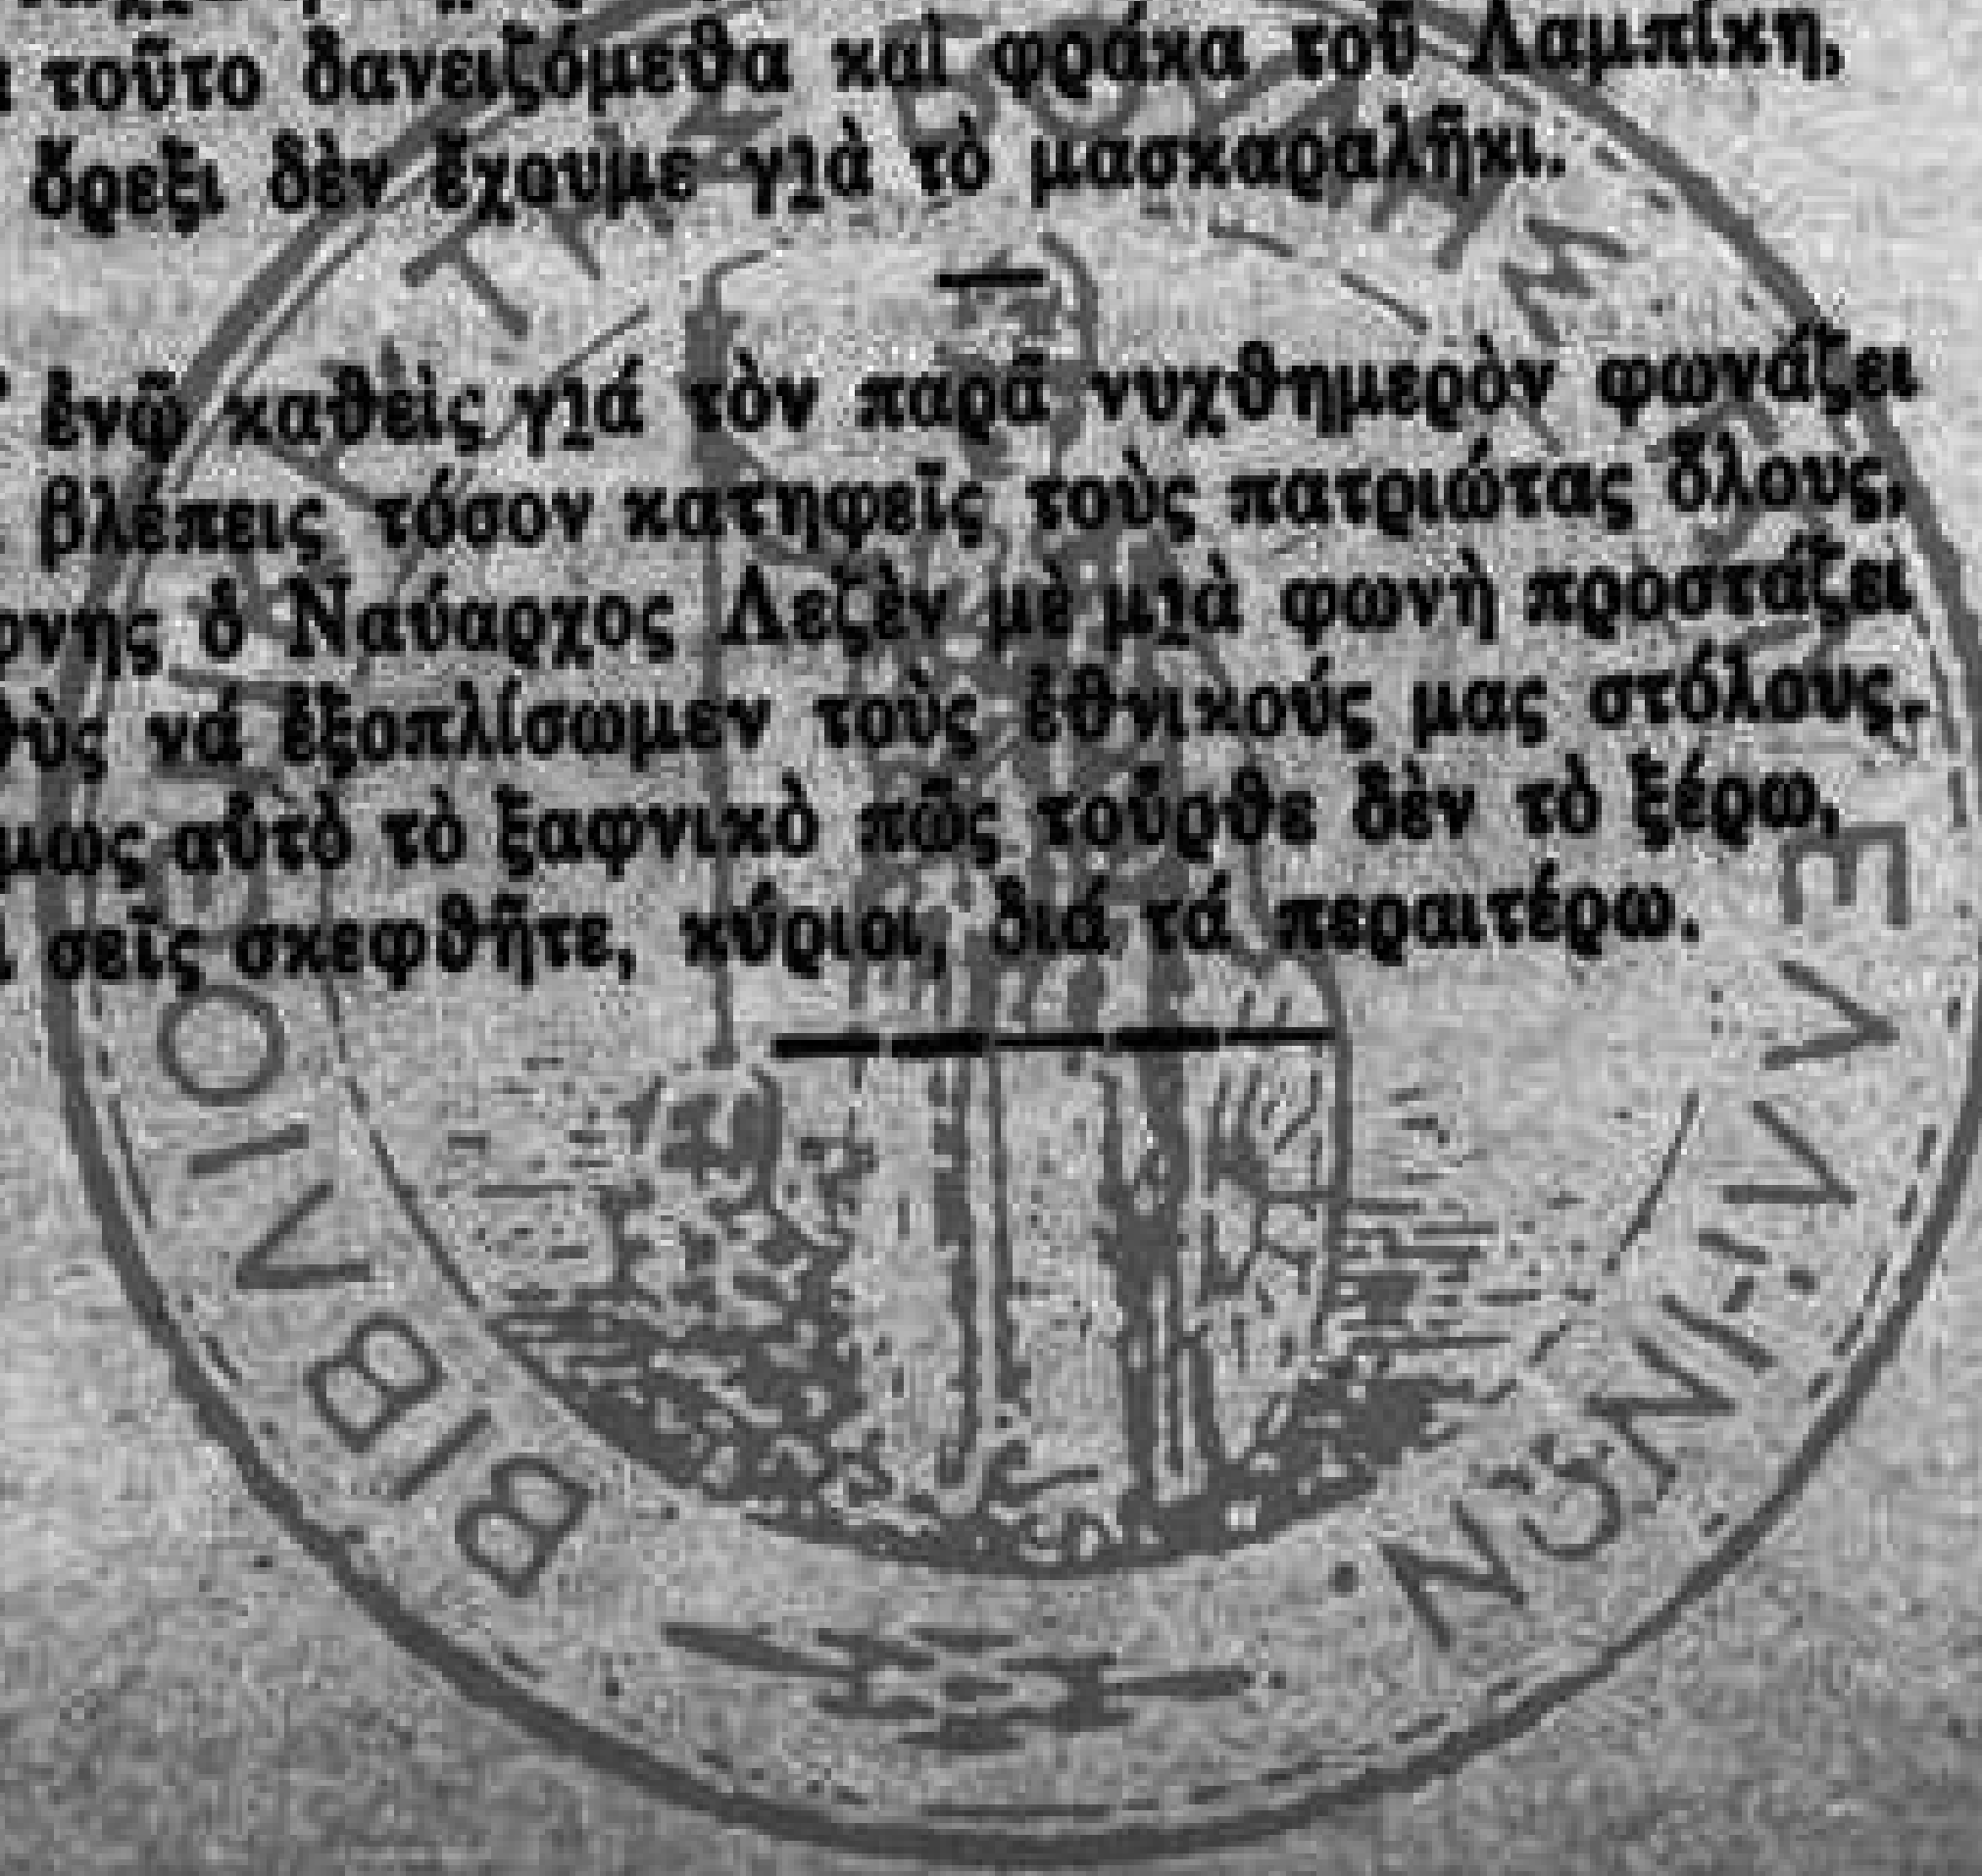 τοῦτο δανειζόμεθα καὶ φράκα τοῦ Λαμπίκη,
ὄρεξι δὲν ἔχουμε γιὰ τὸ μασκαραλῆκι.
ἐνῷ καθεὶς γιά τὸν παρᾶ νυχθημερὸν φωνάζει
βλέπεις τόσον κατηφεῖς τοὺς πατριώτας ὅλους,
ὁ Ναύαρχος Λεζὲν μὲ μιὰ φωνὴ προστάζει
νά ἐξοπλίσωμεν τοὺς ἐθνικούς μας στόλους.
αὐτὸ τὸ ξαφνικὸ πῶς τοὖρθε δὲν τὸ ξέρω,
σεῖς σκεφθῆτε, κύριοι, διά τά περαιτέρω.